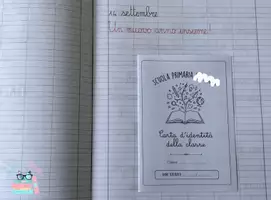 14 settembre
Un nuovo anno insieme!
SCUOLA PRIMARIA
Carta d'identità
della classe
Classe